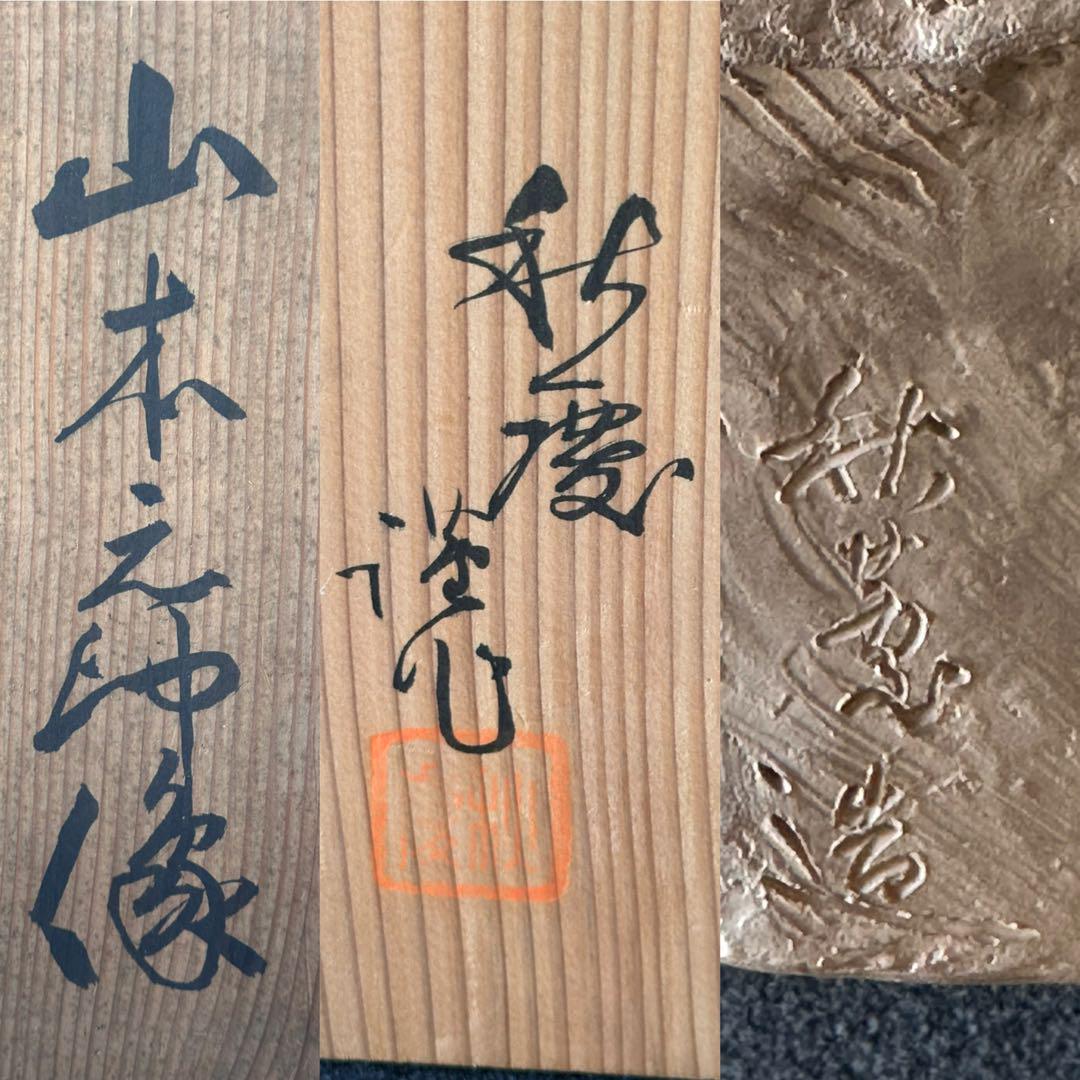 山本元帥像
秋慶
謹作
秋慶造